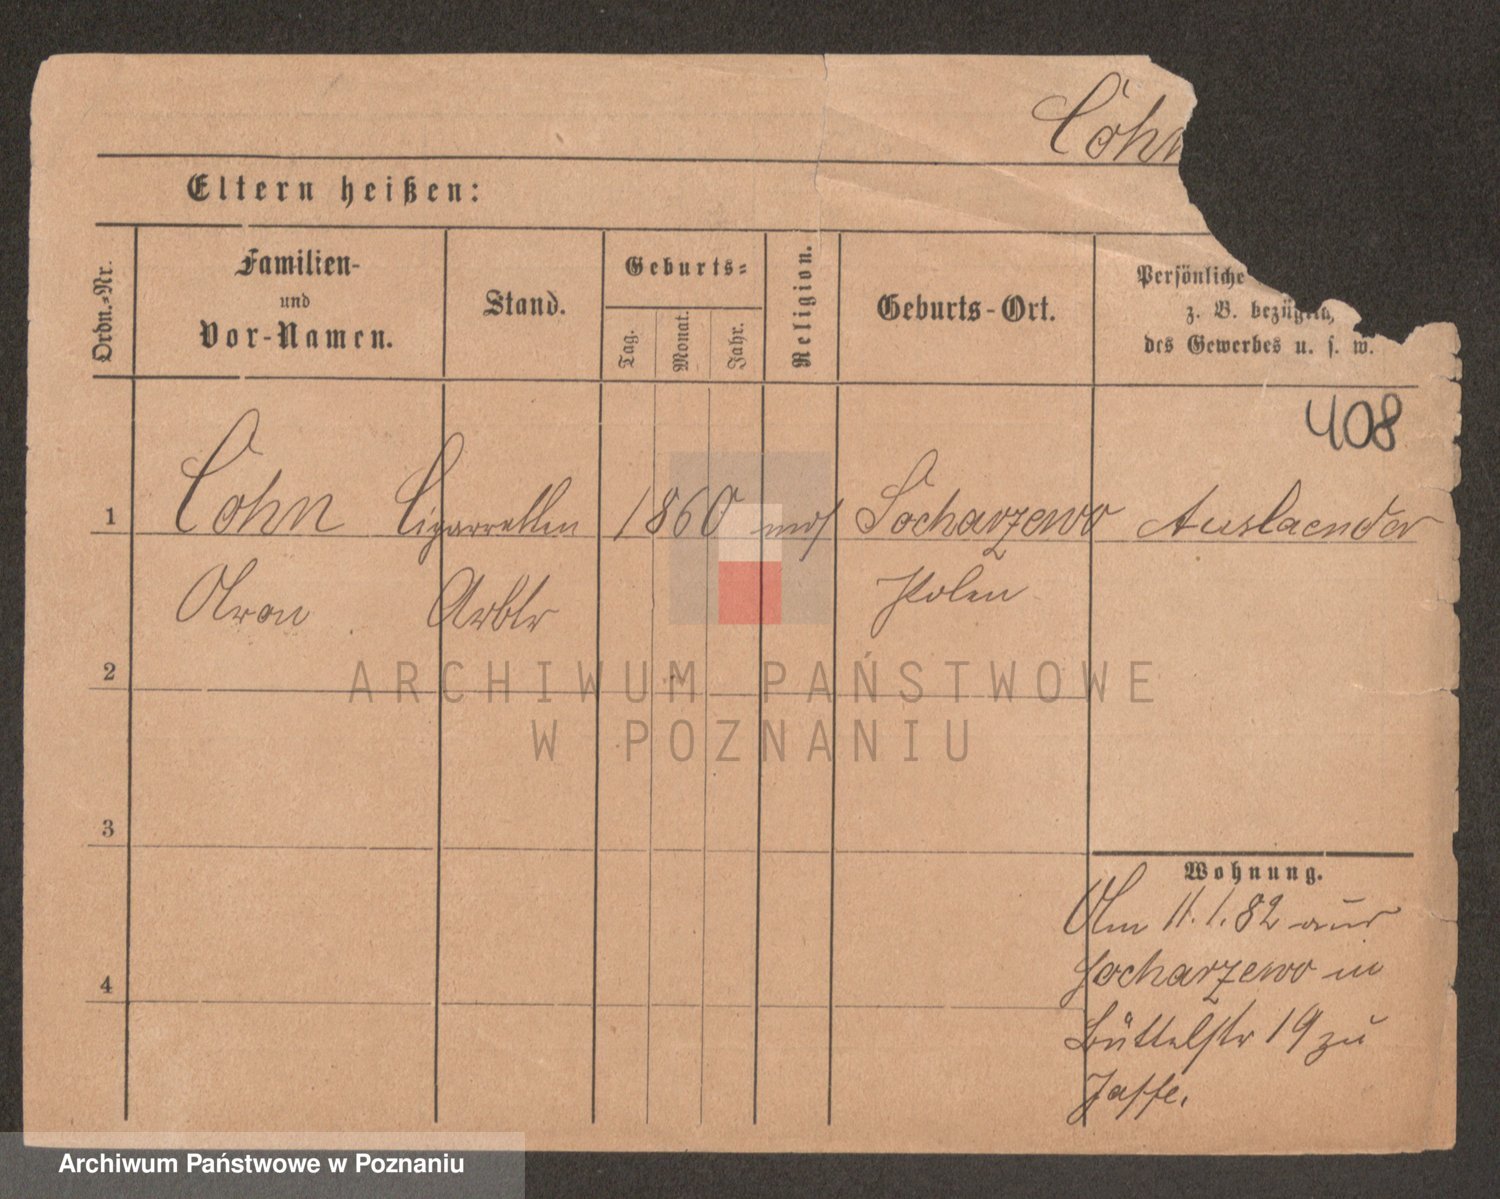 Cohn
Eltern heißen:
Ordn.-Nr.
Familien-
und
Vor-Namen.
Stand.
Geburts-
Tag.
Monat.
Jahr.
Religion.
Geburts-Ort.
Persönliche
z. B. bezüglich
des Gewerbes u. s. w.
408
1 Cohn Cigarretten 1860 mos Socharzewo Auslaender
Aron Arbtr Polen
2
ARCHIWUM PAŃSTWOWE
W POZNANIU
3
Wohnung.
Am 11.1.82 aus
Socharzewo in
4
Büttelstr 19 zu
Jaffe.
Archiwum Państwowe w Poznaniu